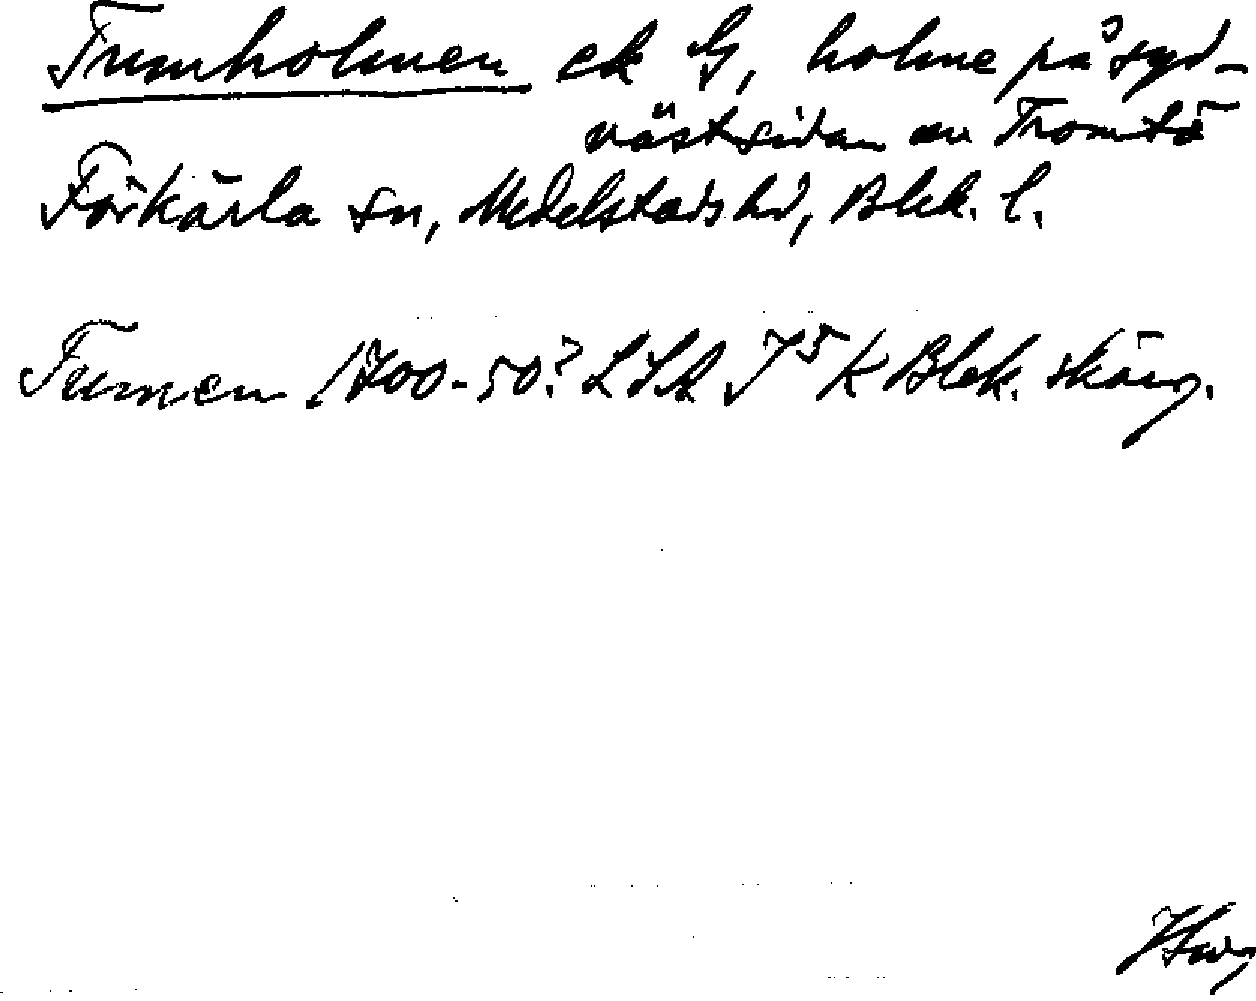 Trumholmen ek G, holme på syd-
västsidan av Tromtö
Förkärla sn, Medelstads hd, Blek. l.
Tumen 1700-50? LSA J5 K Blek. skärg.